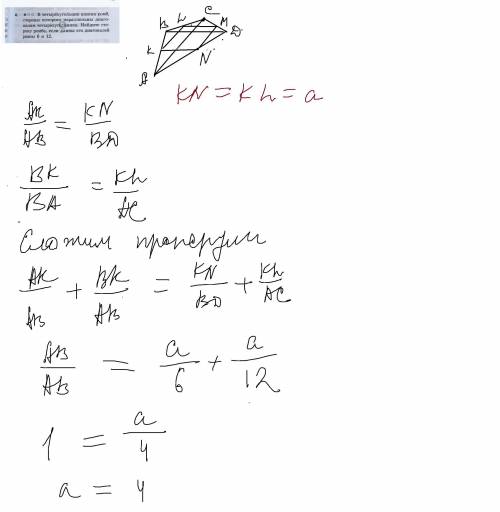 В четырехугольник вписан ромб,
стороны которого параллельны диаго-
налям четырехугольника. Найдите сто-
рону ромба, если длины его диагоналей
равны 6 и 12.
B L C M D
K N
A
KN = KL = a
AK/AB = KN/BD
BK/BA = KL/AC
Сложим пропорции
AK/AB + BK/AB = KN/BD + KL/AC
AB/AB = a/6 + a/12
1 = a/4
a = 4